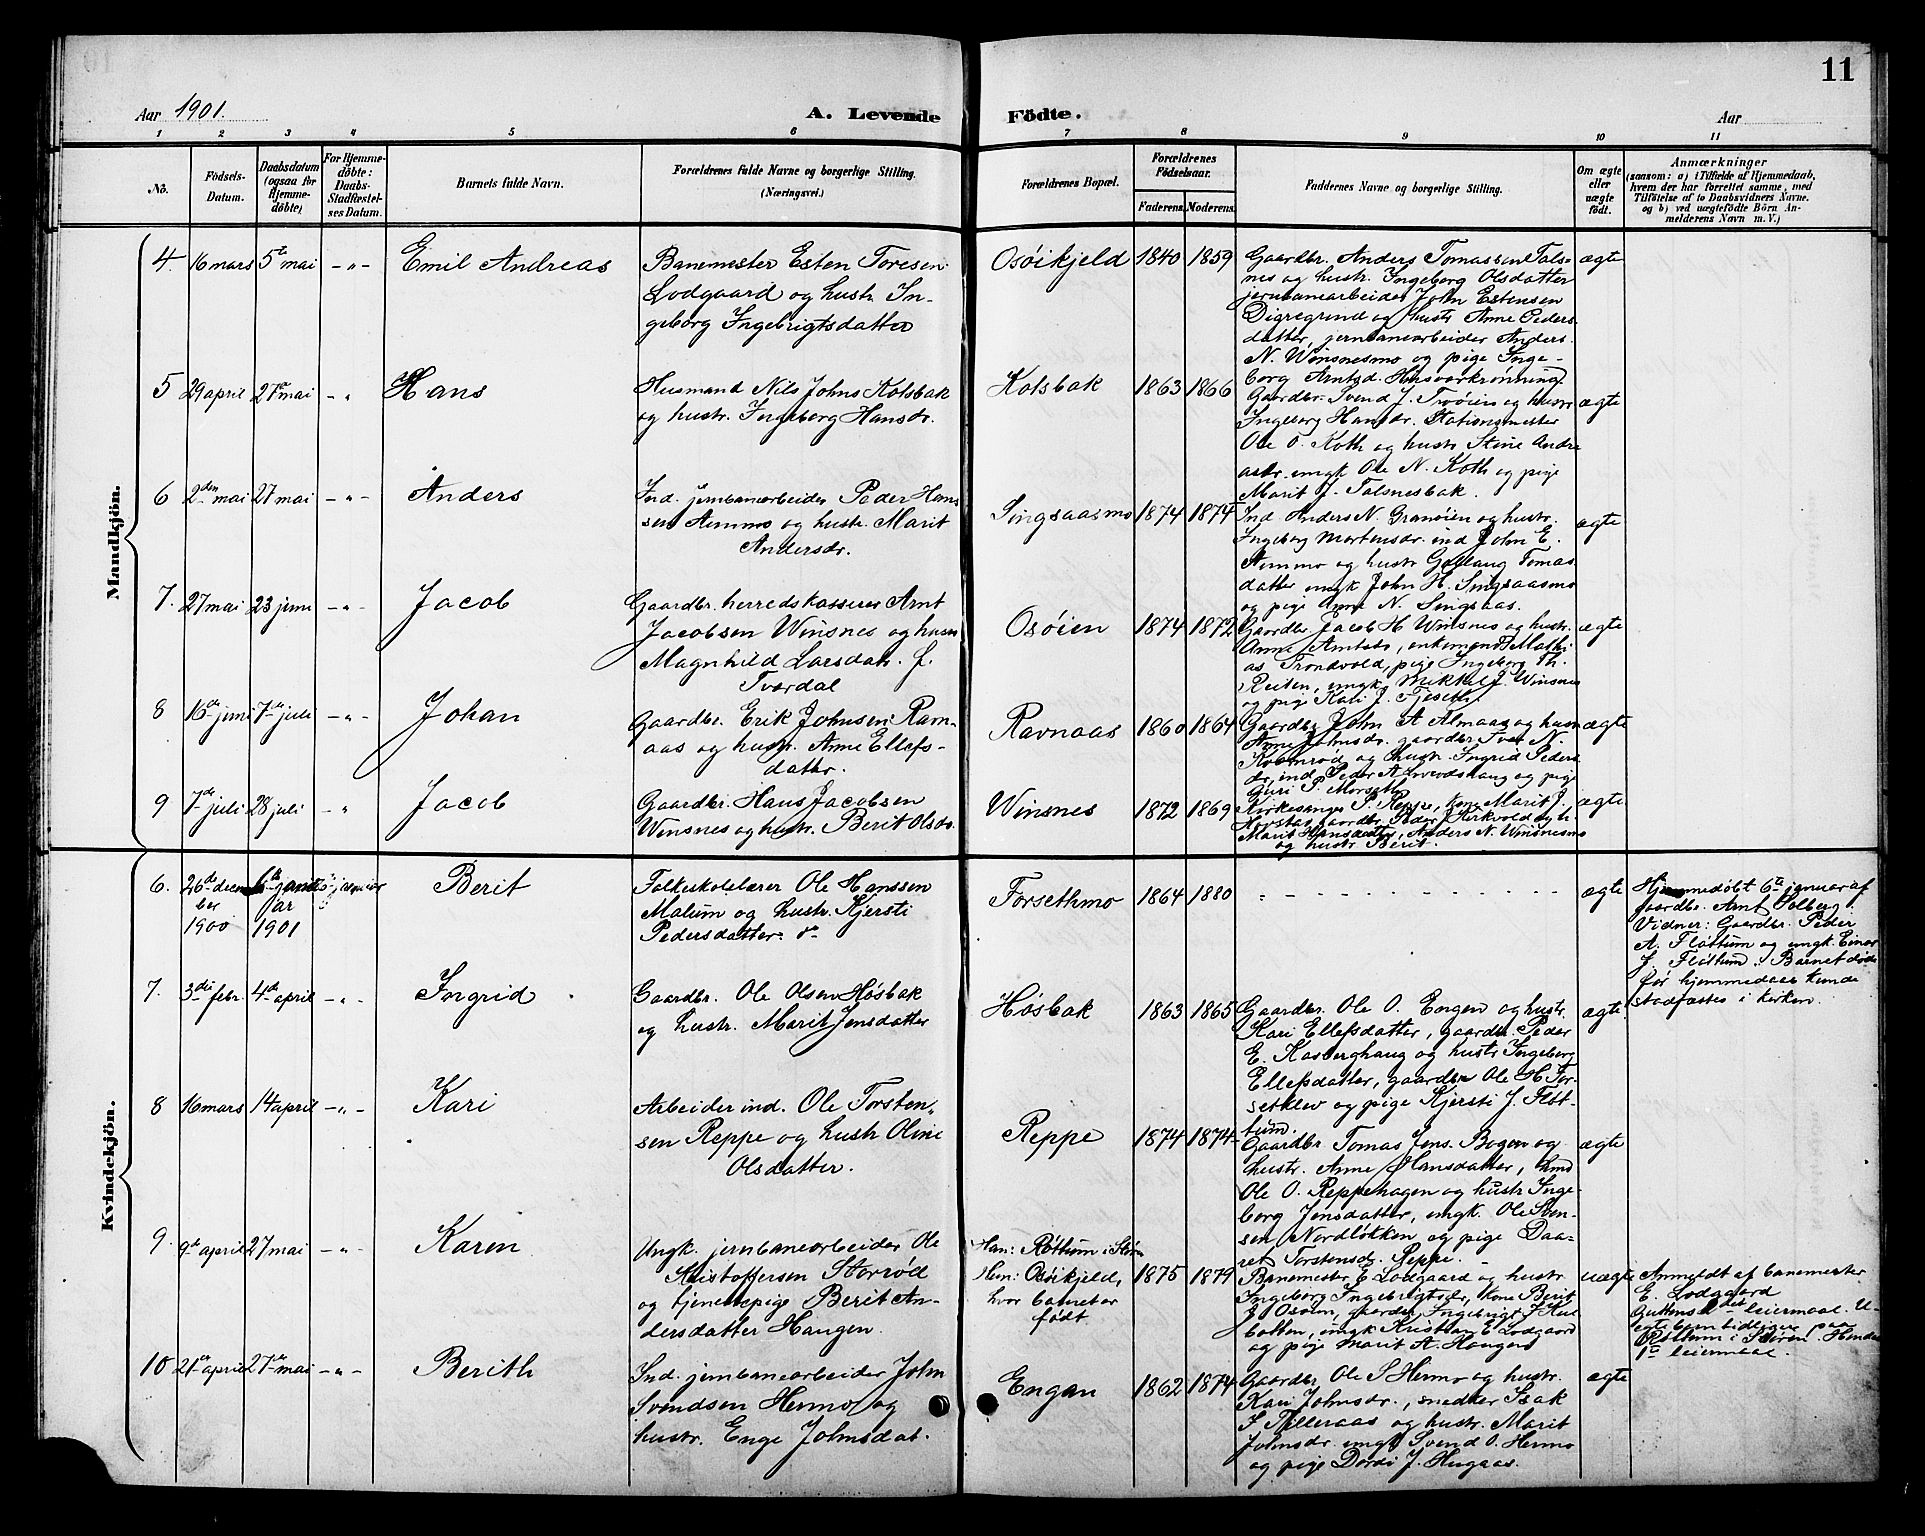 11
Aar 1901.
A. Levende Födte.
Aar
1 2 3 4 5 6 7 8 9 10 11
Nô.
Födsels-Datum.
Daabsdatum (ogsaa for Hjemmedöbte)
For Hjemmedöbte: Daabs-Stadfæstelses Datum.
Barnets fulde Navn.
Forældrenes fulde Navne og borgerlige Stilling.
(Næringsvei.)
Forældrenes Bopæl.
Forældrenes Födselsaar.
Faderens. Moderens.
Faddernes Navne og borgerlige Stilling.
Om ægte eller uægte födt.
Anmærkninger
(saasom: a) i Tilfælde af Hjemmedaab,
hvem der har forrettet samme, med
Tilföielse af to Daabsvidners Navne.
og b) ved uægtefödte Börn Anmelderens Navn m. V.)
Mandkjön.
4. 16 mars 5te mai -"- Emil Andreas
Banemester Esten Toresen
Lodgaard og hustr. In-
geborg Ingebrigtsdatter
Osöikjeld 1840 1859
Gaardbr. Anders Tomassen Tals-
nes og hustr. Ingeborg Olsdatter
jernbanearbeider John Estensen
Digregrund og hustr Anne Peders
datter, jernbanearbeider Anders
N. Winsnesmo og pige Inge-
borg Arntsd.
ægte
5 29 april 27de mai -"- Hans
Husmand Nils Johns Kotsbak
og hustr. Ingeborg Hansdr.
Kotsbak 1863 1866
Gaardbr. Svend J. og hustr
Ingeborg Hansdr. Stationsmester
Ole O. Koth og hustr Stine Andre
asdr. ungk Ole N. Koth og pige
Marit J. Talsnesbak.
ægte
6 2den mai 27 mai -"- Anders
Ind. jernbanearbeider Peder Hans
sen Aemmo og hustr. Marit
Andersdr.
Singsaasmo 1874 1874
Ind Anders N. Granöien og hustr.
Ingeborg Mortensdr. ind John E.
og hustr Tomas
datter ungk John H. Singsaasmo
og pige Anne N. Singsaas.
ægte
7. 27 mai 23 juni -"- Jacob
Gaardbr. herredskasserer Arnt
Jacobsen Winsnes og hustr
Magnhild Larsdatr. f.
Tverdal
Osöien 1874 1872
Gaardbr Jacob H Winsnes og hustr.
Anne Arntsdr, enkemand Mathi
as Trondvold, pige Ingeborg Th.
Reiten, ungk Mikkel J. Winsnes
og pig Kari J. Fjeseth.
ægte
8 16de juni 7de juli -"- Johan
Gaardbr. Erik Johnsen Ravn-
aas og hustr. Anne Ellefs-
datter.
Ravnaas 1860 1864
Gaardbr John A Almaas og hustr
Anne Johnsdr. gaardbr Iver N.
og hustr Ingrid Peders
dr, ind Peder og pige
Guri P. Morseth.
ægte
9 7de juli 28 juli -"- Jacob
Gaardbr. Hans Jacobsen
Winsnes og hustr. Berit Olsdr.
Winsnes 1872 1869
Kirkesanger P. Reppe, kone Marit J.
Hovstad, gaardbr. Peder J Kirkvold og h.
Marit Hansdatter, Anders N. Winsnesmo
og hustr Berit.
ægte
Kvindekjön.
6. 26de decem
ber
1900
6te janu
ar
1901
Berit
Folkeskolelærer Ole Hanssen
Malum og hustr. Kjersti
Pedersdatter
Forsethmo 1864 1880
ægte
Hjemmedöbt 6te januar af
gaardbr. Arnt Solberg.
Vidner: Gaardbr. Peder
A. Flöttum og ungk. Einar
J. Flöttum. Barnet döde
för hjemmedaab kunde
stadfæstes i kirken.
7. 3die febr. 4de april -"- Ingrid
Gaardbr. Ole Olsen Hösbak
og hustr. Marit Jensdatter
Hösbak 1863 1865
Gaardbr. Ole O. Engen og hustr.
Kari Ellefsdatter, gaardbr. Peder
E. Kasberghaug og hustr Ingeborg
Ellefsdatter, gaardbr Ole H For-
setklev og pige Kjersti J. Flöt-
tum.
ægte
8 16 mars 14 april -"- Kari
Arbeider ind. Ole Torsten-
sen Reppe og hustr Oline
Olsdatter.
Reppe 1874 1874
Gaardbr Tomas Jens. Bogen og
hustr. Anne Hansdatter,
Ole O. Reppehagen og hustr Inge-
borg Jensdatter, ungk. Ole Sven-
sen Nordlökken og pige Daa-
ret Torstensd. Reppe.
ægte
9. 9de april 27 mai -"- Karen
Ungk. jernbanearbeider Ole
Kristoffersen Storröd
og tjenestepige Berit An-
dersdatter Haugen.
Han: Röttum i Stören
Hun: Osöikjeld,
hvor barnet er
födt.
1875 1879
Banemester E Lodgaard og hustr
Ingeborg Ingebrigtsdr, kone Berit
E Osöien, gaardbr Ingebrigt J Kul
botten, ungk Kristian E Lodgaard
og pige Marit A. Haugen
uægte
Anmeldt af banemester
E. Lodgaard
leiermaal.
Röttum i Stören. Hendes
1te leiermaal.
10 21de april 27de mai -"- Berith
Ind. jernbanearbeider John
Svendsen Hermo og
hustr. Enge Johnsdat.
Engan 1862 1874
Gaardbr Ole S Hermo og hustr.
Kari Johnsdr., snedker Isak
S Tilleraas og hustr. Marit
Johnsdr. ungk Svend O. Hermo
og pige Dordi J. Hugaas.
ægte